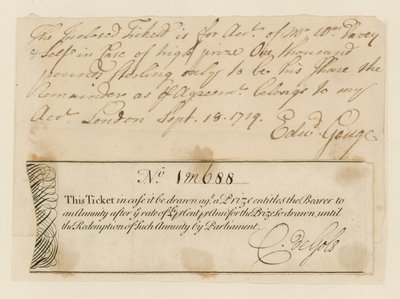 The Inclosed Ticket is for Acct. of Mr. Wm. Pavey
& Self in Case of high prize One thousand
pounds Sterling only to be his Share the
Remainder as Agreemt. belongs to my
Acct. London Sept. 18. 1719.
Edwd. Gouge
No. 1m688
This Ticket in case it be drawn agt. a Prize entitles the Bearer to
an Annuity after ye rate of Cent for the Prize so drawn, until
the Redemption of such Annuity by Parliament.
C. deSols